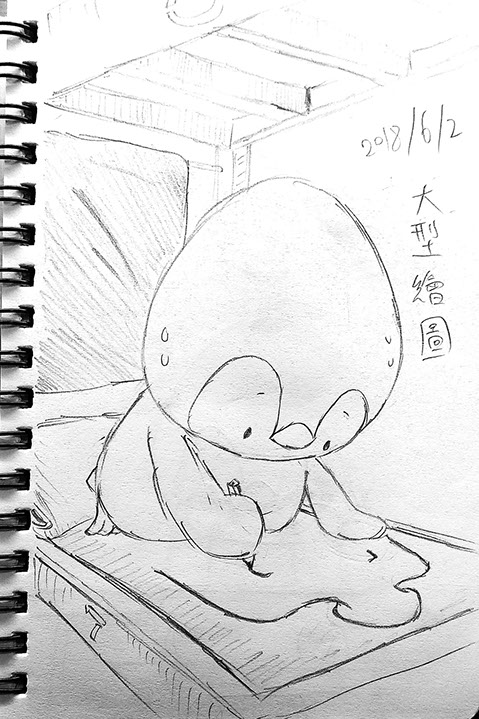 2018/6/2
大型繪圖